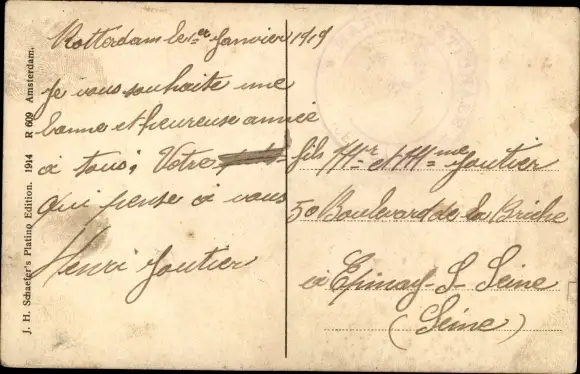 Rotterdam le 1er Janvier 1919
Je vous souhaite une
bonne et heureuse année
à tous; Votre fils
qui pense à vous
Henri Gautier
Mr et Mme Gautier
50 Boulevard de la Briche
à Epinay-S-Seine
(Seine)
J. H. Schaefer's Platino Edition. 1914 R 609 Amsterdam.